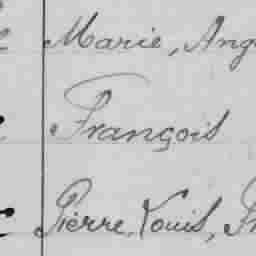 Marie, Ang
François
Pierre, Louis,